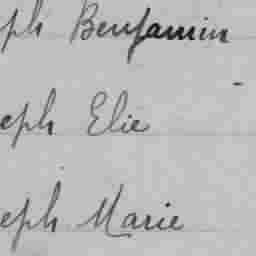 ph Benjamin
eph Elie
eph Marie